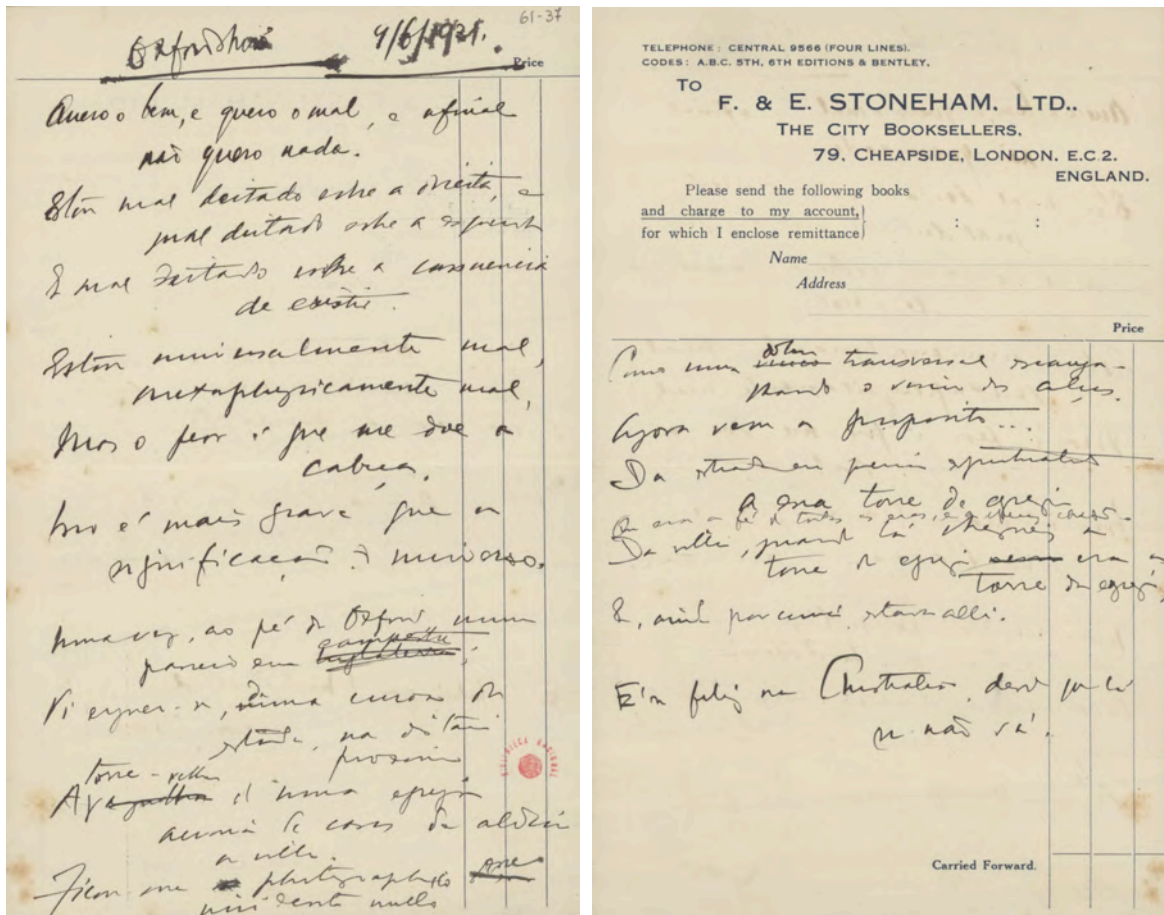 61-37
Oxfordshire 4/6/1931.
Price
Quero o bem, e quero o mal, e afinal
não quero nada.
Estou mal deitado sobre a direita, e
mal deitado sobre a esquerda
E mal deitado sobre a consciencia
de existir.
Estou universalmente mal,
metaphysicamente mal,
Mas o peor é que me doe a
cabeça.
Isso é mais grave que a
significação do universo.
Uma vez, ao pé de Oxford, num
passeio campestre,
Vi erguer-se, de uma curva da
estrada, na distancia
proxima
A torre-velha de uma egreja
acima de casas da aldeia
ou villa.
Ficou-me photographico esse
incidente nullo
BIBLIOTECA NACIONAL
TELEPHONE: CENTRAL 9566 (FOUR LINES).
CODES: A.B.C. 5TH, 6TH EDITIONS & BENTLEY.
TO
F. & E. STONEHAM, LTD.,
THE CITY BOOKSELLERS,
79, CHEAPSIDE, LONDON, E.C 2.
ENGLAND.
Please send the following books
and charge to my account,
for which I enclose remittance
Name
Address
Price
Como uma dobra transversal escanga-
lhando o vinco das calças.
Agora vem a proposito...
Da estrada eu previa espiritualidade
a essa torre de egreja
Que era a fé de todas as eras, e a efficaz caridade.
Da villa, quando lá cheguei, a
torre da egreja era a
torre da egreja,
E, ainda por cima, estava alli.
É-se feliz na Australia, desde que lá
se não vá.
Carried Forward.